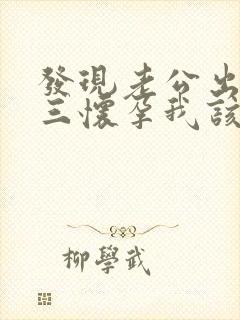 發現老公出
三懷孕我該
柳學武